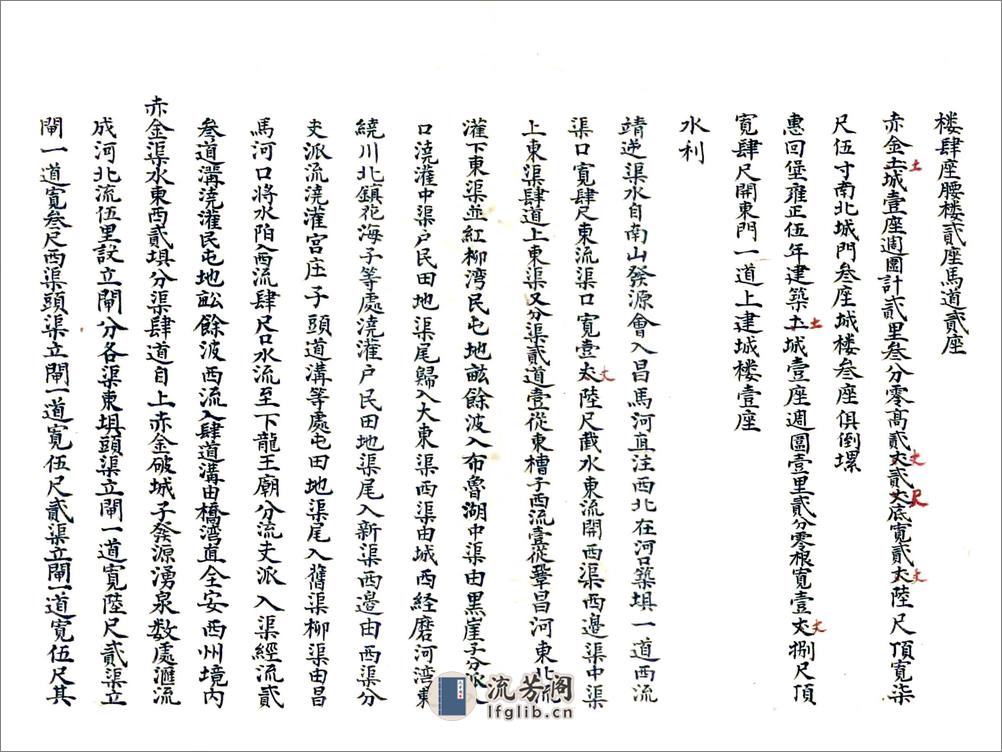 楼肆座腰楼貳座馬道貳座
赤金土城壹座週圍計貳里叁分零高貳丈貳尺底寬貳丈陸尺頂寬柒
尺伍寸南北城門叁座城楼叁座俱倒塌
惠回堡雍正伍年建築土城壹座週圍壹里貳分零根寬壹丈捌尺頂
寬肆尺開東門一道上建城楼壹座
水利
靖逆渠水自南山發源會入昌馬河直注西北在河口築埧一道西流
渠口寬肆尺東流渠口寬壹丈陸尺截水東流開西渠西邊渠中渠
上東渠肆道上東渠又分渠貳道壹從東槽子西流壹從鞏昌河東北流
灌下東渠並紅柳湾民屯地畝餘波入布魯湖中渠由黑崖子分派入
口澆灌中渠户民田地渠尾歸入大東渠西渠由城西経磨河湾東
繞川北鎮花海子等處澆灌户民田地渠尾入新渠西邊由西渠分
支派流澆灌宮庄子頭道溝等處屯田地渠尾入舊渠柳渠由昌
馬河口將水陌入西流肆尺口水流至下龍王廟分流支派入渠經流貳
叁道溝澆灌民屯地畝餘波西流入肆道溝由橋湾直全安西州境内
赤金渠水東西貳埧分渠肆道自上赤金破城子發源湧泉数處滙流
成河北流伍里設立閘分各渠東埧頭渠立閘一道寬陸尺貳渠立
閘一道寬叁尺西渠頭渠立閘一道寬伍尺貳渠立閘一道寬伍尺其
流芳阁
lfglib.cn